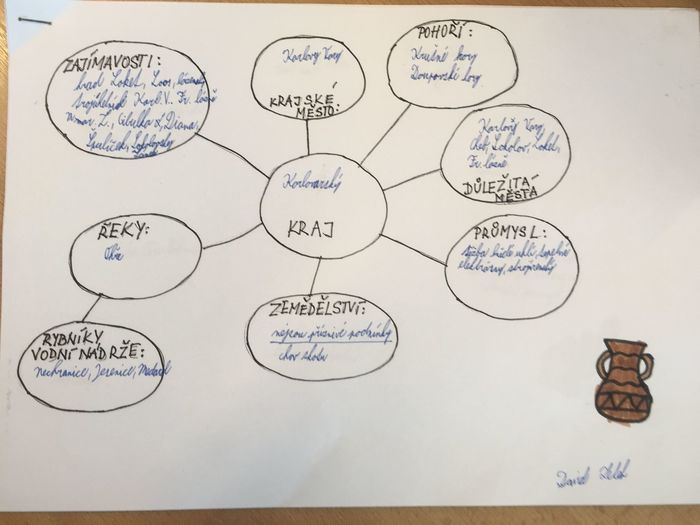 ZAJÍMAVOSTI:
hrad Loket, Loos, lázeňský
trojúhelník Karl. V. Fr. lázně
a mar. L.,
Diana,
Karlovy Vary
KRAJSKÉ
MĚSTO:
POHOŘÍ:
Krušné hory
Doupovské hory
Karlovy Vary,
Cheb, Sokolov, Loket,
Fr. lázně
DŮLEŽITÁ
MĚSTA
Karlovarský
KRAJ
ŘEKY:
Ohře
PRŮMYSL:
těžba hnědé uhlí, tepelné
elektrárny, strojírenský
ZEMĚDĚLSTVÍ:
nejsou příznivé podmínky
chov skotu
RYBNÍKY,
VODNÍ NÁDRŽE:
nechranice, Jesenice, Medard
David